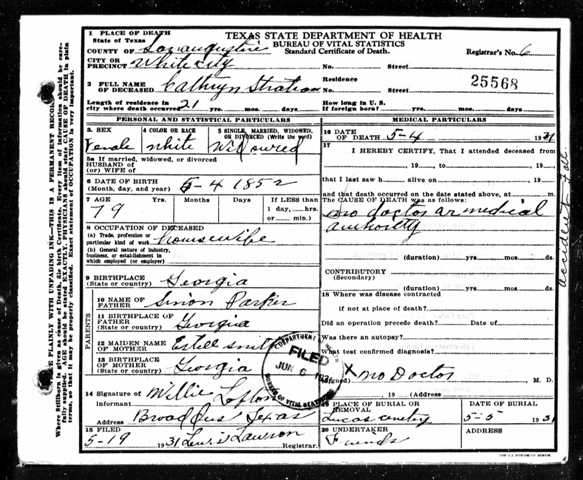 1 PLACE OF DEATH
TEXAS STATE DEPARTMENT OF HEALTH
State of Texas
BUREAU OF VITAL STATISTICS
COUNTY OF San augustine
Standard Certificate of Death.
Registrar's No. 6
CITY OR PRECINCT White City
No. Street
2 FULL NAME OF DECEASED Cathryn
Residence
No. Street
25568
Length of residence in city where death occurred 21 yrs. mos. days
How long in U. S. if of foreign birth? yrs. mos. days
PERSONAL AND STATISTICAL PARTICULARS
MEDICAL PARTICULARS
3. SEX Female
4 COLOR OR RACE white
5 SINGLE, MARRIED, WIDOWED, OR DIVORCED (Write the word) Widowed
16 DATE OF DEATH 5-4 1931
17 I HEREBY CERTIFY, That I attended deceased
5a If married, widowed, or divorced
HUSBAND OF
(or) WIFE OF
from 19 to 19
that I last saw h alive on 19
6 DATE OF BIRTH (Month, day, and year) 5-4 1852
and that death occurred on the date stated above, at m.
7 AGE 79 Years Months Days If LESS than 1 day, hrs. or min.)
The CAUSE OF DEATH was as follows:
no doctor or medical
authority
8 OCCUPATION OF DECEASED
(a) Trade, profession or particular kind of work housewife
(b) General nature of industry, business, or establishment in which employed (or employer)
(duration) yrs. mos. ds.
CONTRIBUTORY (Secondary)
(duration) yrs. mos. ds.
accident fall
9 BIRTHPLACE (State or country) Georgia
18 Where was disease contracted
if not at place of death?
PARENTS
10 NAME OF FATHER Simon Parker
Did an operation precede death? Date of
11 BIRTHPLACE OF FATHER (State or country) Georgia
Was there an autopsy?
12 MAIDEN NAME OF MOTHER Estell Smith
What test confirmed diagnosis?
13 BIRTHPLACE OF MOTHER (State or country) Georgia
(Signed) x no Doctor M. D.
DEPARTMENT OF
FILED
JUN 6 1931
BUREAU OF VITAL STATISTICS
14 Signature of Informant Willie Lofton
, 19 (Address)
Address Broaddus Texas
19 PLACE OF BURIAL OR REMOVAL Lucas cemetery
DATE OF BURIAL 5-5 1931
15 FILED 5-19 1931 Lewis Lawson Registrar.
20 UNDERTAKER Friends
ADDRESS